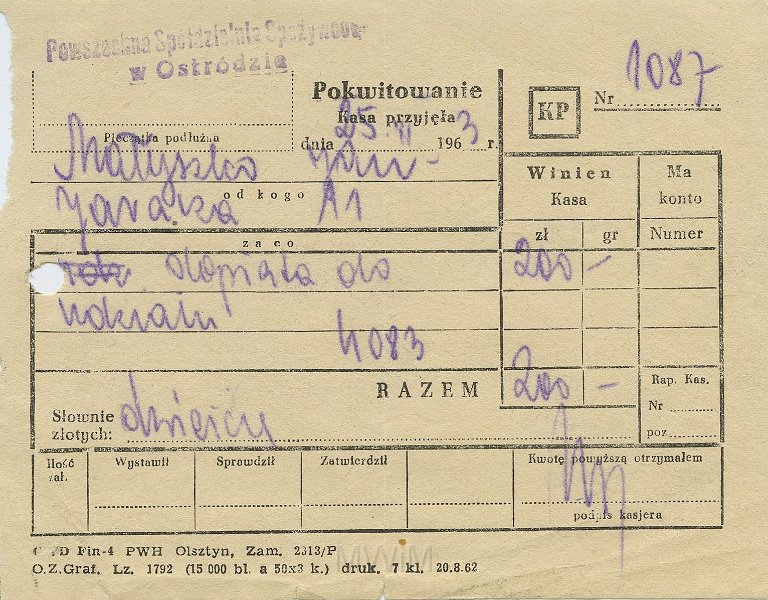 Powszechna Spółdzielnia Spożywców
w Ostródzie
Pieczątka podłużna
Pokwitowanie
Kasa przyjęła
dnia 25 VI 1963 r.
KP
Nr 1087
Małyszko Jan -
od kogo
Jaracza 11
za co
Winien
Kasa
zł gr
Ma
konto
Numer
dopłata do 200 -
udziału
4083
RAZEM 200 -
Rap. Kas.
Nr
poz
Słownie
złotych: dwieście
Ilość
zał.
Wystawił
Sprawdził
Zatwierdził
Kwotę powyższą otrzymałem
podpis kasjera
Fin-4 PWH Olsztyn, Zam. 2313/P
O.Z.Graf. Lz. 1792 (15 000 bl. a 50x3 k.) druk. 7 kl. 20.8.62
MWiM